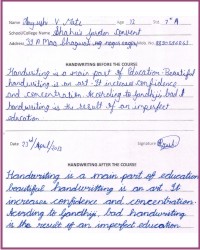 Name Age 12 Std. 7th A
School/College Name
Address
HANDWRITING BEFORE THE COURSE
Handwriting is a main part of education. Beautiful
handwriting is an art. It increase confidence
and concentration. According to Gandhiji, bad
handwriting is the result of an imperfect
education.
Date Signature
HANDWRITING AFTER THE COURSE
Handwriting is a main part of education
beautiful handwriting is an art. It
increases confidence and concentration.
According to Gandhiji, bad handwriting
is the result of an imperfect education